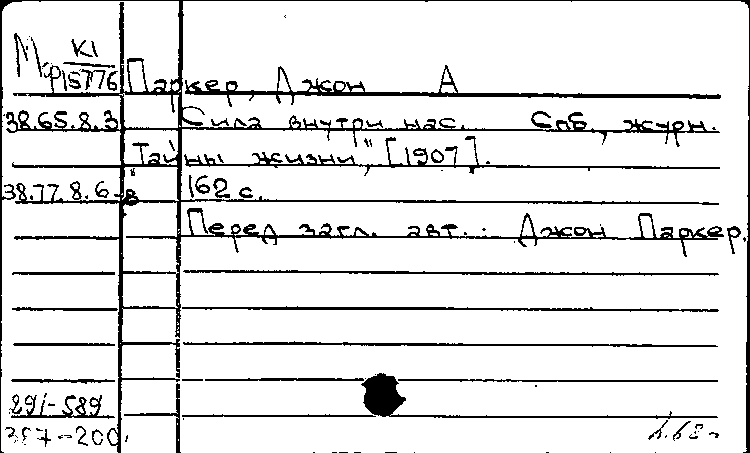 Мкф К1/15776
Паркер, Джон А
38.65.8.3 Сила внутри нас. Спб., журн.
"Тайны жизни", [1907].
38.77.8.6-8 162 с.
Перед загл. авт.: Джон Паркер.
291-589
387-200